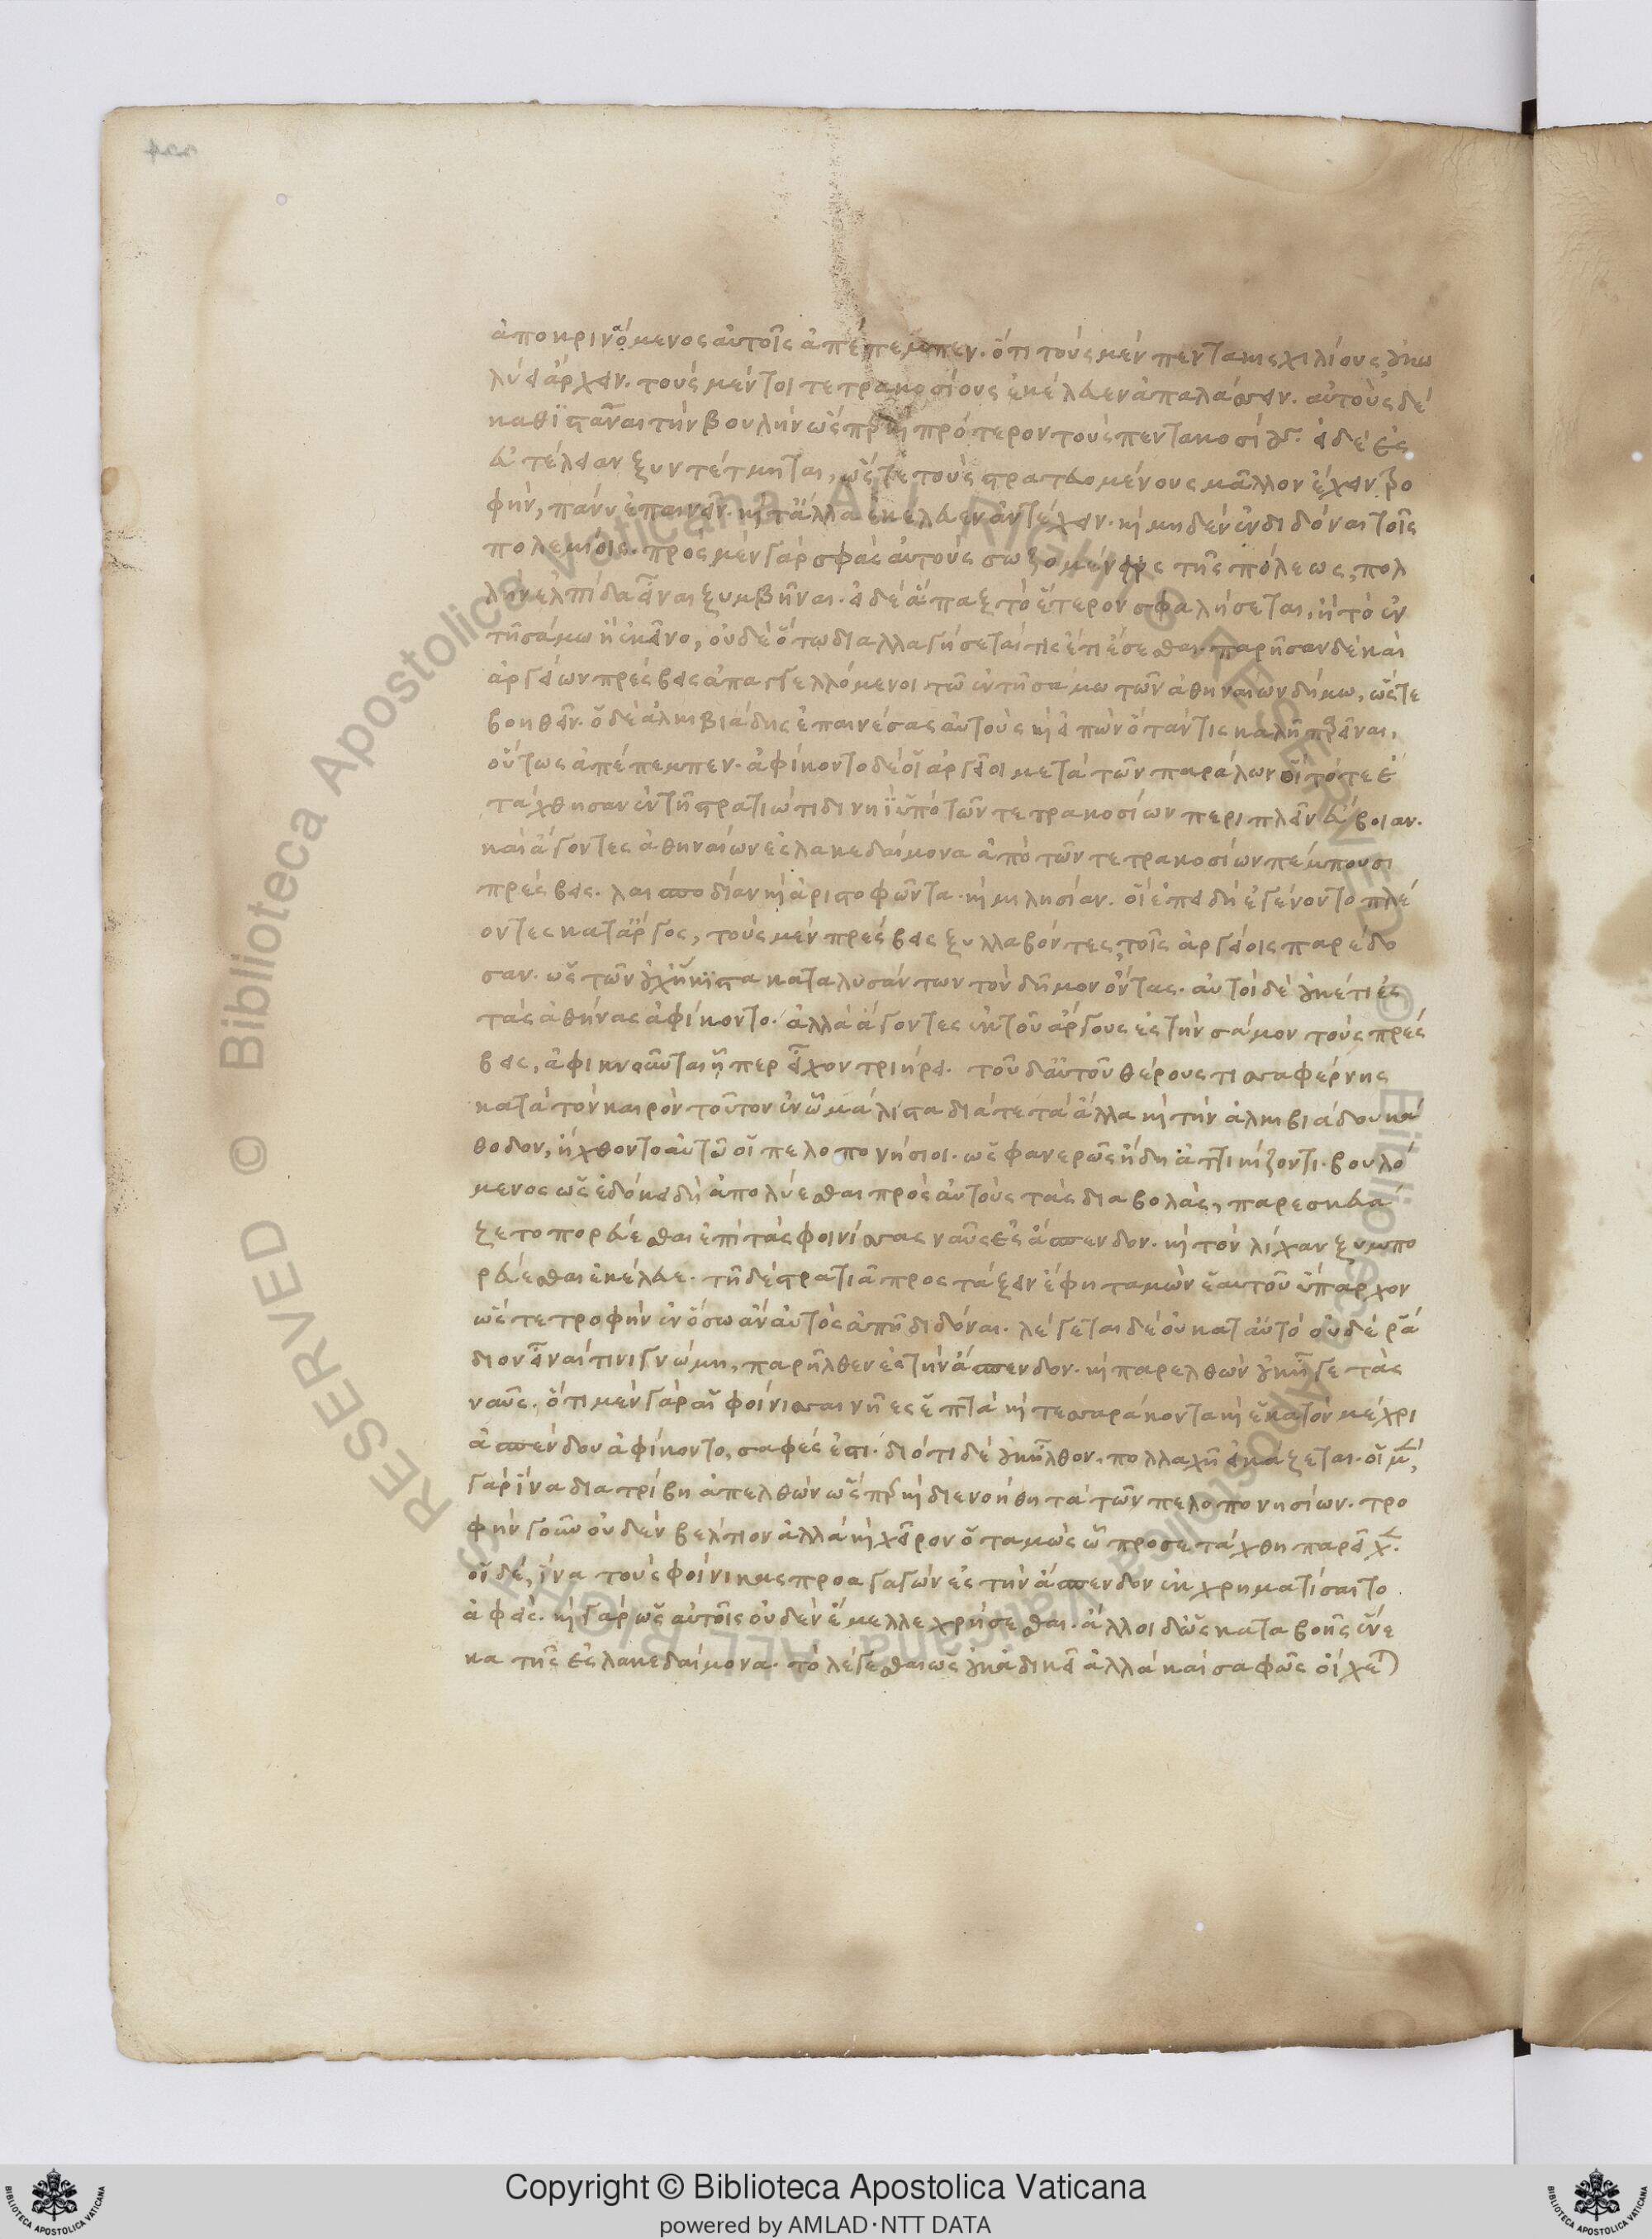 ἀποκρινόμενος αὐτοῖς ἀπέπεμπεν. ὅτι τοὺς μὲν πεντακισχιλίους οὐ κω
λύει ἄρχειν. τοὺς μέντοι τετρακοσίους ἐκέλευεν ἀπαλάσσειν. αὐτοὺς δὲ
καθϊστάναι τὴν βουλὴν ὥσπερ καὶ πρότερον τοὺς πεντακοσίους. εἰ δὲ ἐς
εὐτέλειαν ξυντέτμηται, ὥστε τοὺς στρατευομένους μᾶλλον ἔχειν τρο
φήν, πάνυ ἐπαινεῖν. καὶ τἄλλα ἐκέλευεν ἀντέχειν. καὶ μηδὲν ἐνδιδόναι τοῖς
πολεμίοις. πρὸς μὲν γὰρ σφᾶς αὐτοὺς σωζομένης τῆς πόλεως, πολ
λὴν ἐλπίδα εἶναι ξυμβῆναι. εἰ δὲ ἅπαξ τὸ ἕτερον σφαλήσεται, ἢ τὸ ἐν
τῇ σάμω ἢ ἐκεῖνο, οὐδὲ ὅτω διαλλαγήσεταί τις ἔτι ἔσεσθαι. παρῆσαν δὲ καὶ
ἀργείων πρέσβεις ἐπαγγελλόμενοι τῶ ἐν τῇ σάμω τῶν ἀθηναίων δήμω, ὥστε
βοηθεῖν. ὁ δὲ ἀλκιβιάδης ἐπαινέσας αὐτοὺς καὶ εἰπὼν ὅταν τις καλῇ παρεῖναι,
οὕτως ἀπέπεμπεν. ἀφίκοντο δὲ οἱ ἀργεῖοι μετὰ τῶν παράλων οἳ τότε ἐ
τάχθησαν ἐν τῇ στρατιώτιδι νηῒ ὑπὸ τῶν τετρακοσίων περιπλεῖν εὔβοιαν.
καὶ ἄγοντες ἀθηναίων ἐς λακεδαίμονα ἀπὸ τῶν τετρακοσίων πέμπουσι
πρέσβεις. λαισποδίαν καὶ ἀριστοφῶντα. καὶ μιλησίαν. οἳ ἐπειδὴ ἐγένοντο πλέ
οντες κατ' ἄργος, τοὺς μὲν πρέσβεις ξυλλαβόντες, τοῖς ἀργείοις παρέδο
σαν. ὡς τῶν οὐχ ἥκιστα καταλυσάντων τὸν δῆμον ὄντας. αὐτοὶ δὲ οὐκέτι ἐς
τὰς ἀθήνας ἀφίκοντο. ἀλλὰ ἄγοντες ἐκ τοῦ ἄργους ἐς τὴν σάμον τοὺς πρέσ
βεις, ἀφικνοῦνται ᾗπερ εἶχον τριήρει. τοῦ δ' αὐτοῦ θέρους τισσαφέρνης
κατὰ τὸν καιρὸν τοῦτον ἐν ᾧ μάλιστα διά τε τὰ ἄλλα καὶ τὴν ἀλκιβιάδου κά
θοδον, ἤχθοντο αὐτῶ οἱ πελοπονήσιοι. ὡς φανερῶς ἤδη ἀττικίζοντι. βουλό
μενος ὡς ἐδόκει δὴ ἀπολύεσθαι πρὸς αὐτοὺς τὰς διαβολὰς, παρεσκευά
ζετο πορεύεσθαι ἐπὶ τὰς φοινίσσας ναῦς ἐς ἄσπενδον. καὶ τὸν λίχαν ξυμπο
ρεύεσθαι ἐκέλευε. τῇ δὲ στρατιᾶ προστάξειν ἔφη ταμὼν ἑαυτοῦ ὕπαρχον
ὥστε τροφὴν ἐν ὅσω ἂν αὐτὸς ἀπῇ διδόναι. λέγεται δὲ οὐ κατ' αὐτὸ οὐδὲ ῥᾴ
διον εἶναί τινι γνώμη, παρῆλθεν ἐς τὴν ἄσπενδον. καὶ παρελθὼν οὐκ ἦγε τὰς
ναῦς. ὅτι μὲν γὰρ αἱ φοίνισσαι νῆες ἑπτὰ καὶ τεσσαράκοντα καὶ ἑκατὸν μέχρι
ἀσπένδου ἀφίκοντο, σαφές ἐστι. διότι δὲ οὐκ ἦλθον, πολλαχῇ εἰκάζεται. οἱ μὲν,
γὰρ ἵνα διατρίβη ἀπελθὼν ὥσπερ καὶ διενοήθη τὰ τῶν πελοπονησίων. τρο
φὴν γοῦν οὐδὲν βέλτιον ἀλλὰ καὶ χεῖρον ὁ ταμὼς ᾧ προσετάχθη παρεῖχε.
οἱ δὲ, ἵνα τοὺς φοίνικας προαγαγὼν ἐς τὴν ἄσπενδον ἐκχρηματίσαιτο
ἀφείς. καὶ γὰρ ὡς αὐτοῖς οὐδὲν ἔμελλε χρήσεσθαι. ἄλλοι δ' ὡς καταβοῆς ἕνε
κα τῆς ἐς λακεδαίμονα. τὸ λέγεσθαι ὡς οὐκ ἀδικεῖ ἀλλὰ καὶ σαφῶς οἴχεται
Copyright © Biblioteca Apostolica Vaticana
powered by AMLAD·NTT DATA